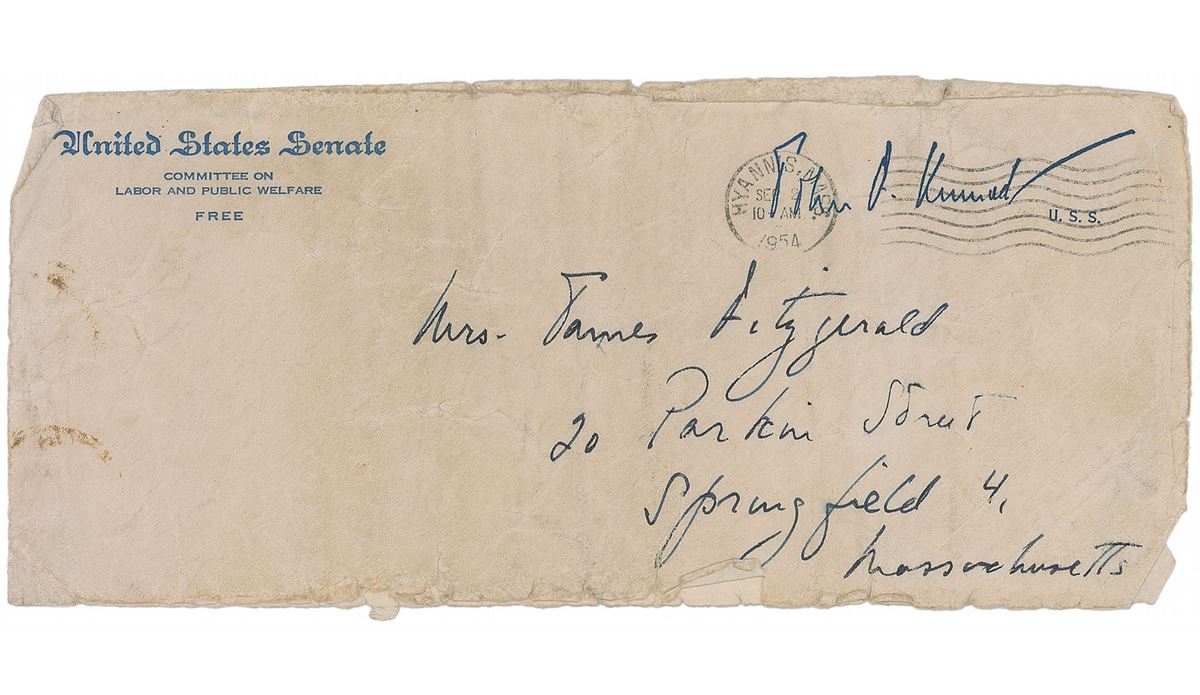 United States Senate
COMMITTEE ON
LABOR AND PUBLIC WELFARE
FREE
HYANNIS, MASS
SEP
10 AM
1954
John F. Kennedy
U. S. S.
Mrs. James Fitzgerald
20 Parkin Street
Springfield 4,
Massachusetts